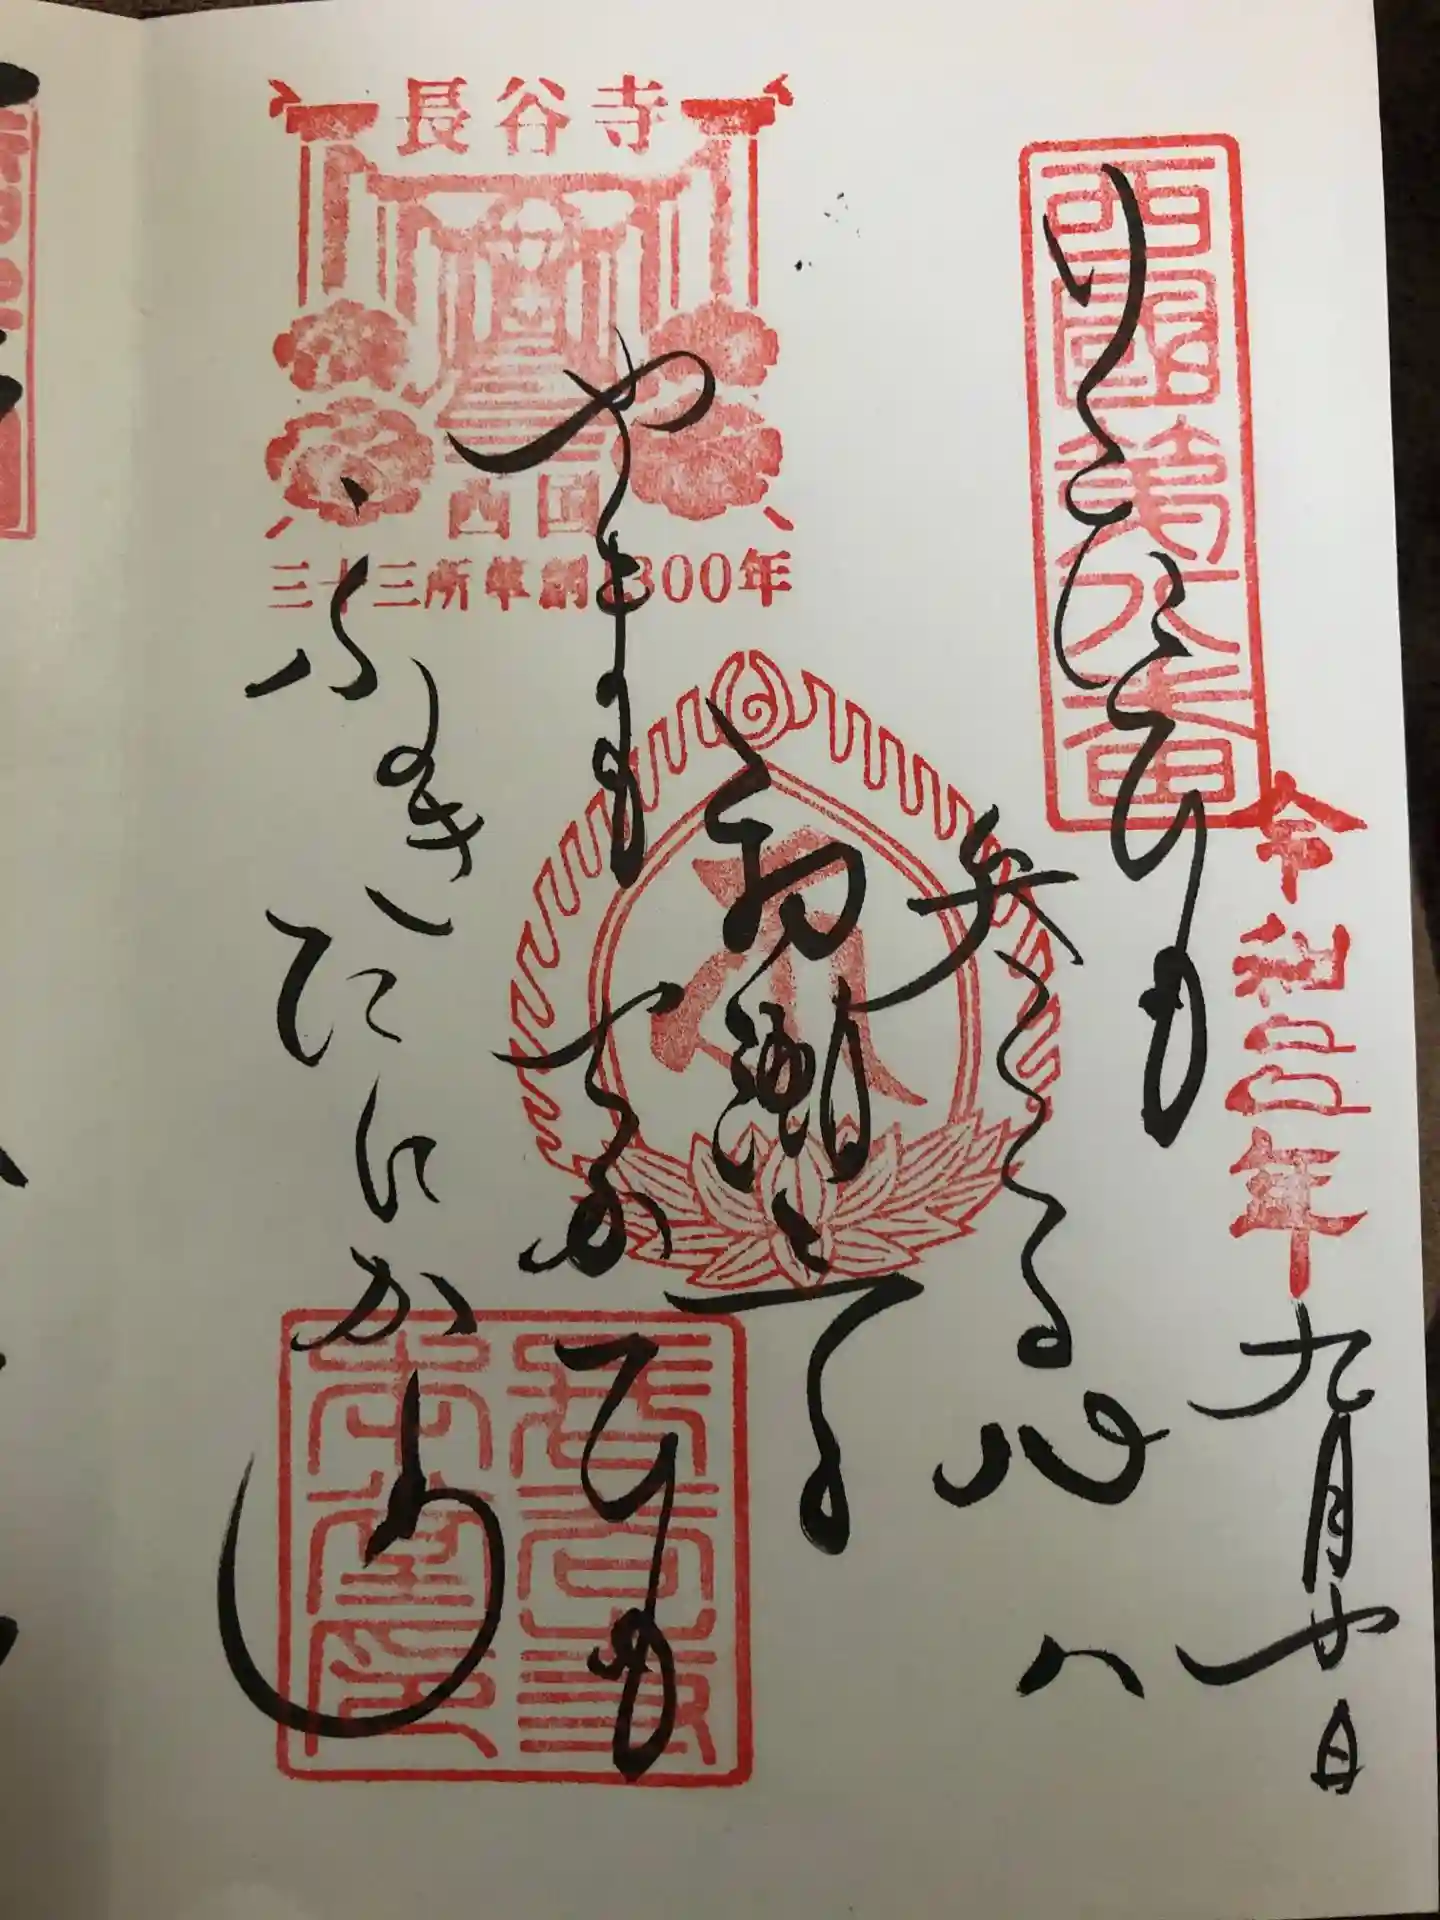 西國第八番
いくたひも
令和四年九月廿日
参る心ハ
初瀬寺
長谷寺
西国
三十三所草創1300年
やまもちかひも
ふかきたにか
長谷寺
本堂印